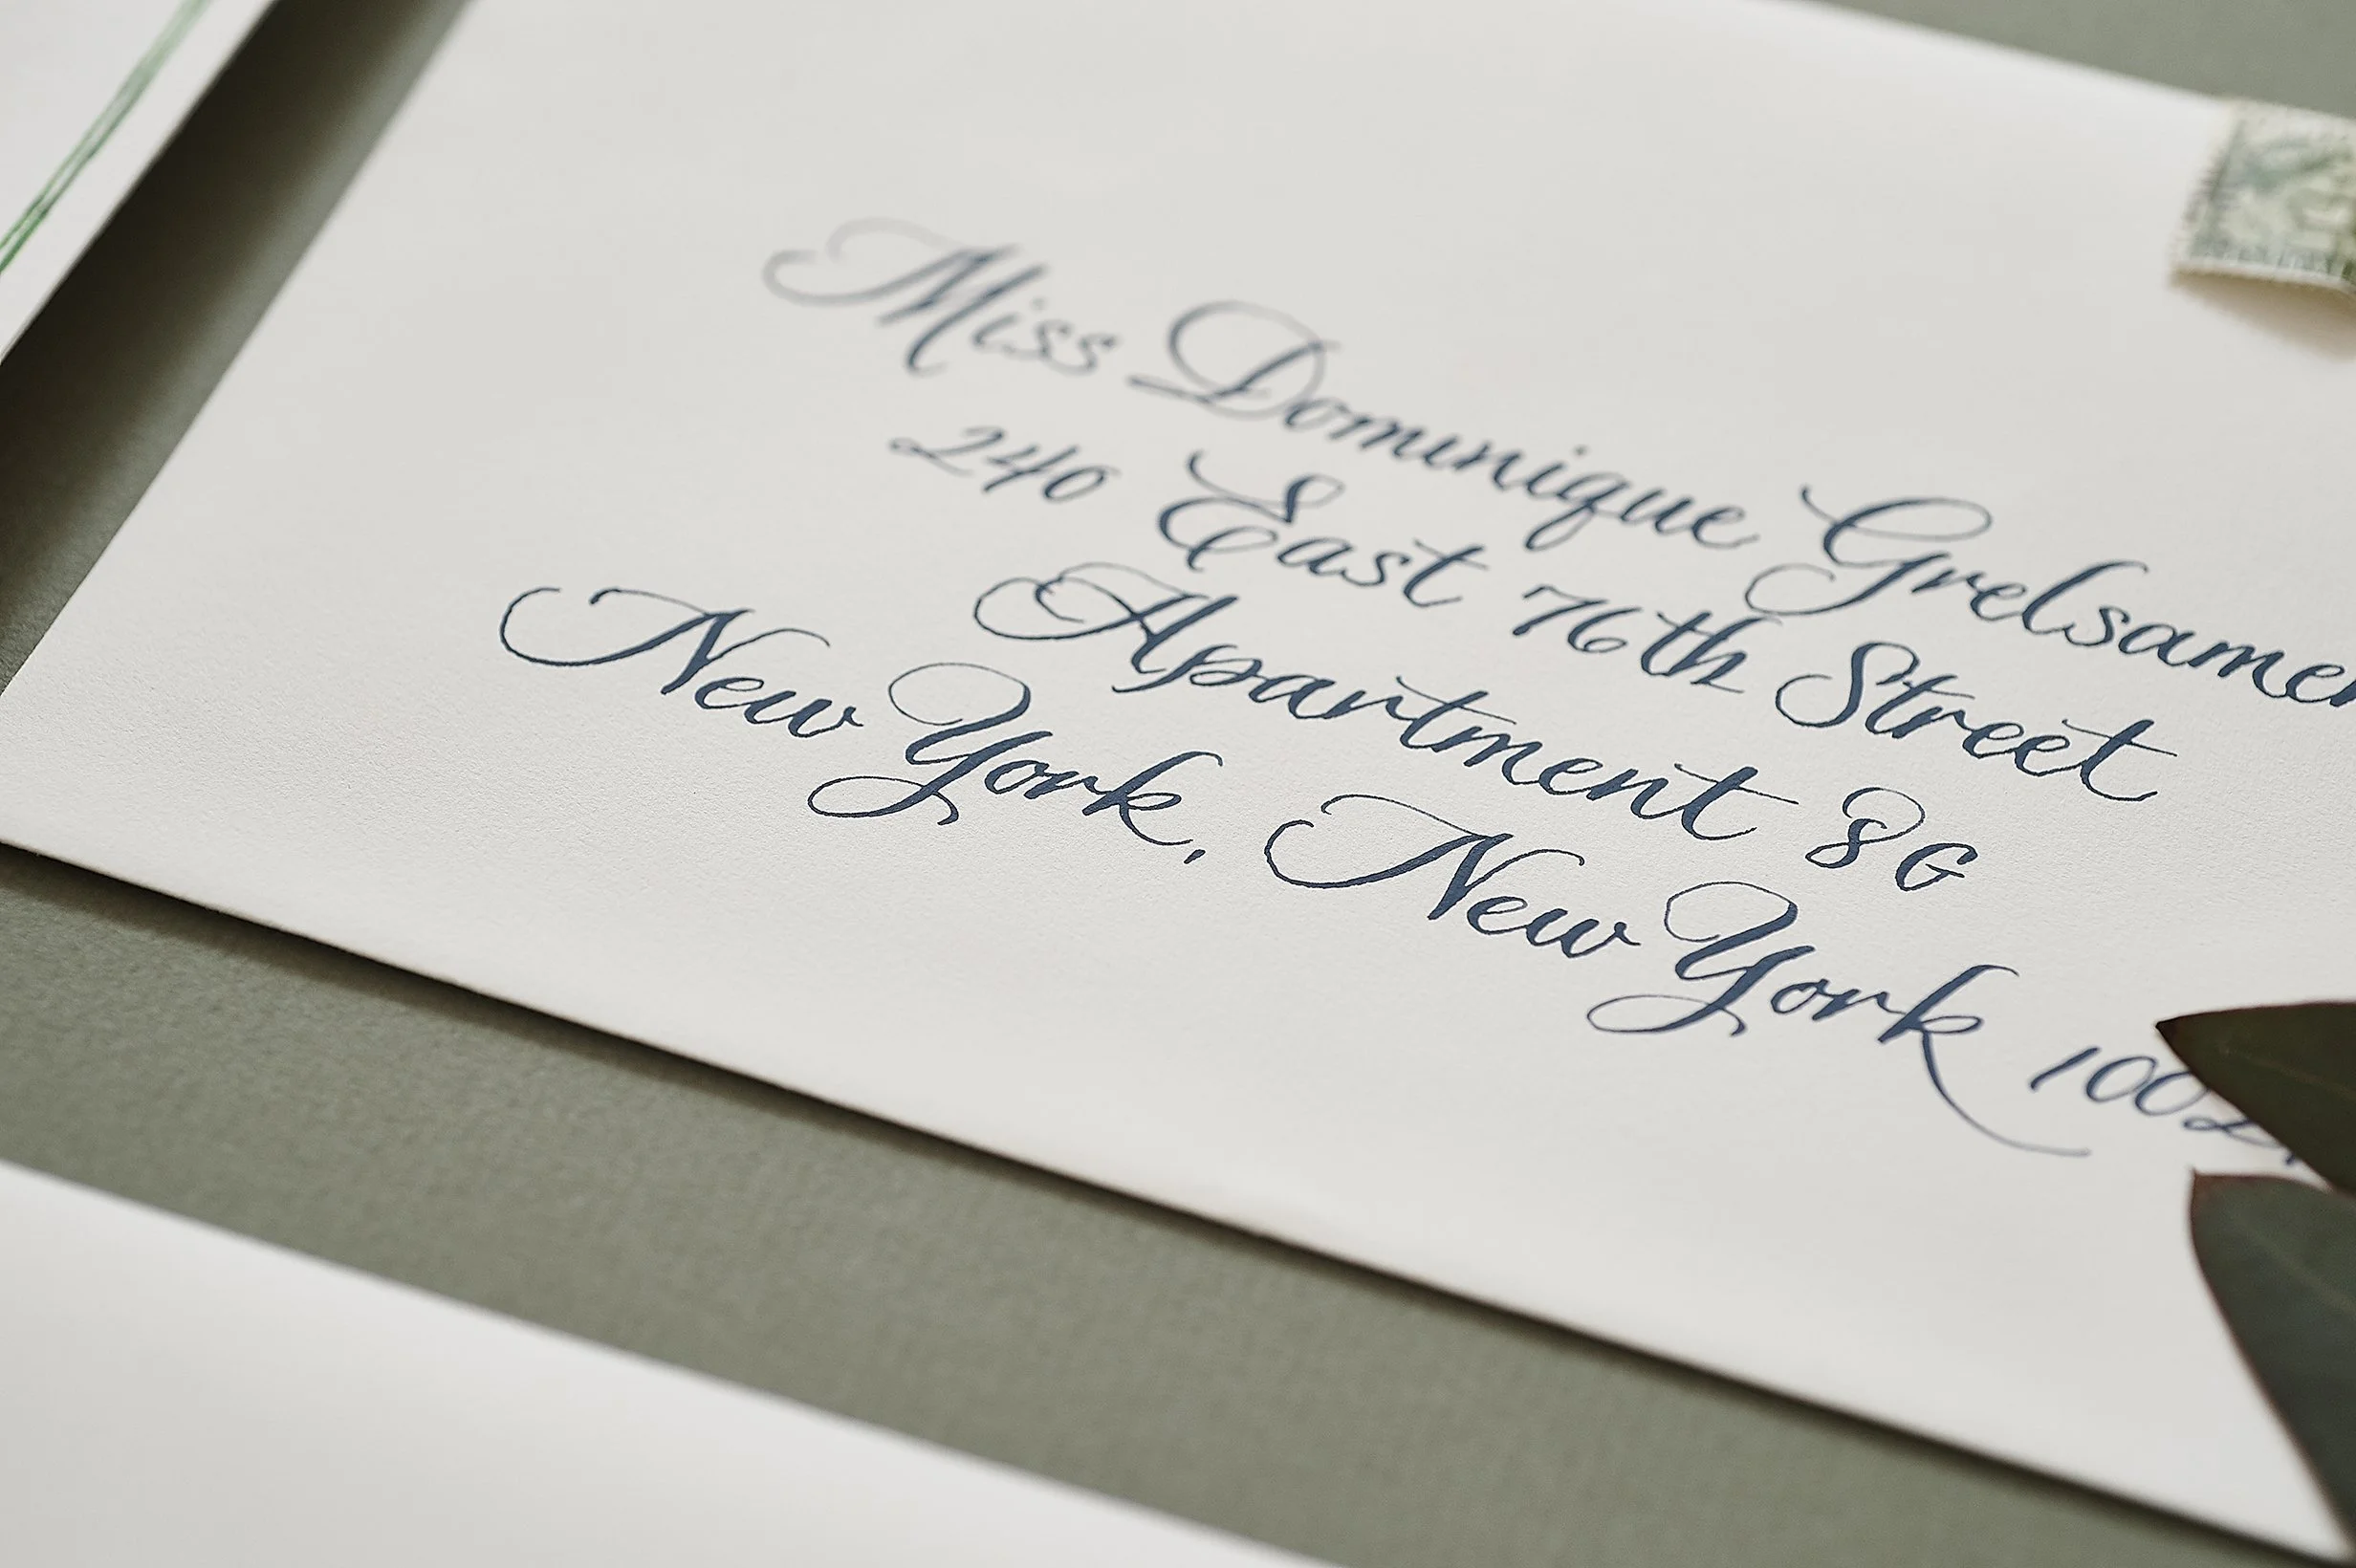 Miss Dominique Grelsamer
240 East 76th Street
Apartment 8G
New York, New York